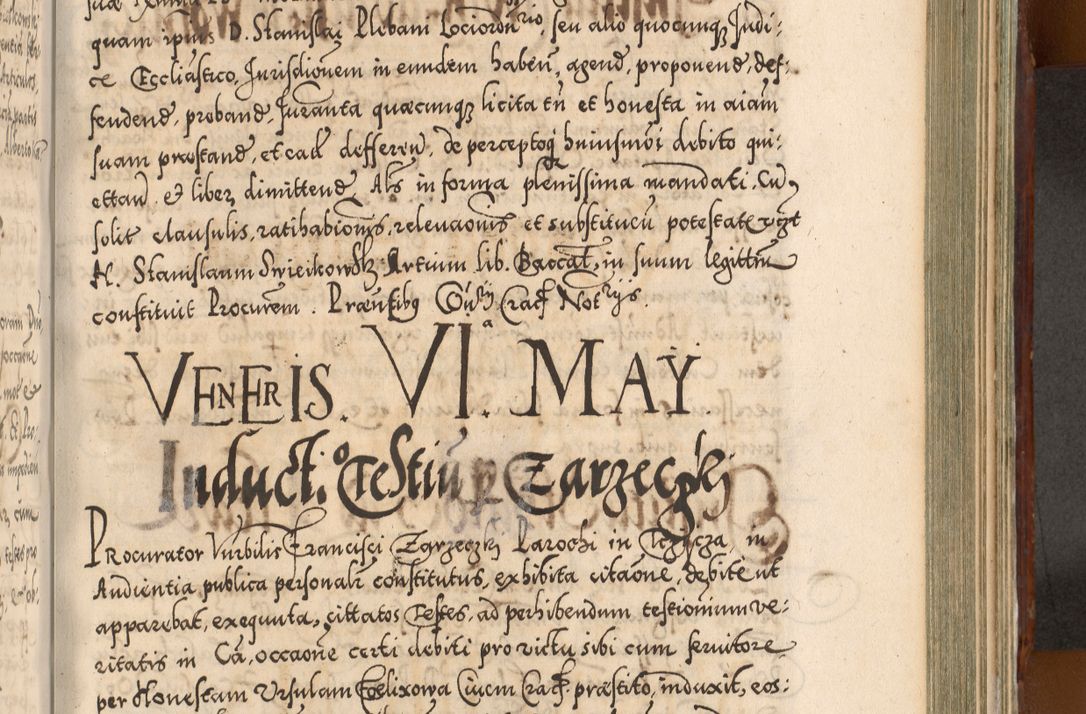 quam ipius D. Stanislai Plebani Lociordnrio, seu alio quocunq Judi:
ce Ecclīastico, Jurisdiōnem in eundem habeñ, agend, proponend, def:
fendend, proband, Juranta quæcunq licita tñ et honesta in aiam
suam præstand, et cad defferen, de perceptoq huiusmōi debito qui:
ettand, et liber dimittend. Als in forma plenissima mandati. Cū
solit clausulis, ratihabionis, relevaonis et substitueñ potestate
N. Stanislaum Swieikowsk Artium lib. Baccal, in suum legittim
constituit Procurem. Præntibq Crac Notrijs.
VENERIS. VI.a MAY.
Induct.o Testiū p Zarzeczki
Procurator Vnrbilis Francisci Zarzeczki Parochi in in
Audientia publica personalr constitutus, exhibita citāone, debite ut
apparebat, exequuta, cittatos Testes, ad perhibendum testionium ve:
ritatis in Cā, occaōne certi debiti pro victu sibi cum servitore
per Honestam Ursulam Civem Crac. præstito, induxit, eos: